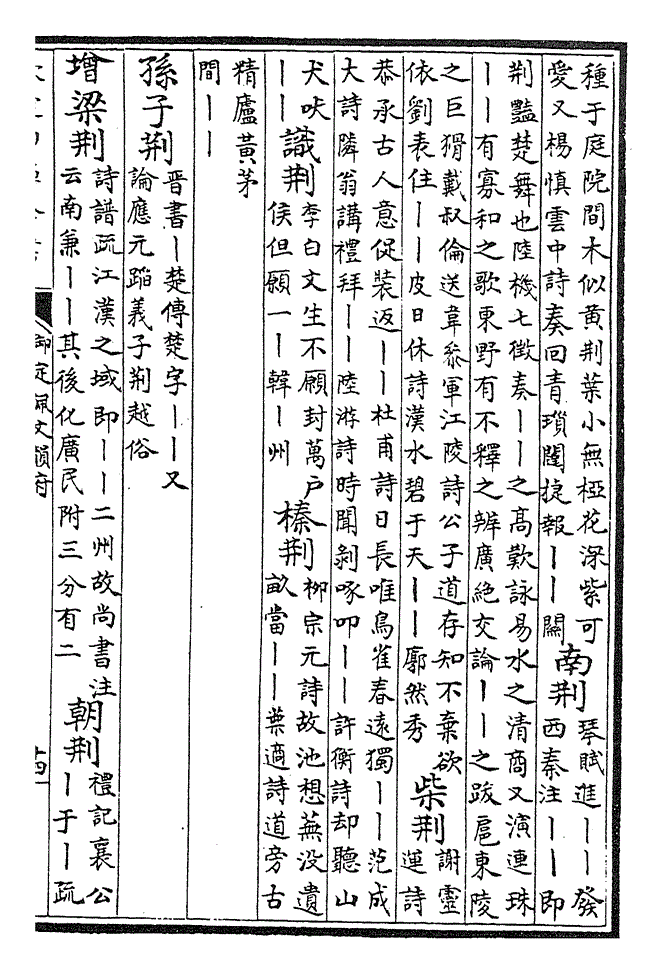 種于庭院間木似黄荆葉小無椏花深紫可
愛又楊慎雲中詩奏回青瑣闥捷報丨丨關
南荆
琴賦進丨丨發
西秦注丨丨即
荆豔楚舞也陸機七徵奏丨丨之高歎詠易水之清商又演連珠
丨丨有寡和之歌東野有不釋之辨廣絶交論丨丨之跋扈東陵
之巨猾戴叔倫送韋叅軍江陵詩公子道存知不棄欲
依劉表住丨丨皮日休詩漢水碧于天丨丨廓然秀
柴荆
謝靈
運詩
恭承古人意促裝返丨丨杜甫詩日長唯鳥雀春遠獨丨丨范成
大詩隣翁講禮拜丨丨陸游詩時聞剝啄叩丨丨許衡詩却聽山
犬吠
丨丨
識荆
李白文生不願封萬戶
侯但願一丨韓丨州
榛荆
柳宗元詩故池想蕪没遺
畝當丨丨葉適詩道旁古
精廬黄茅
間丨丨
孫子荆
晋書丨楚傳楚字丨丨又
論應元蹈義子荆越俗
增梁荆
詩譜疏江漢之域即丨丨二州故尚書注
云南兼丨丨其後化廣民附三分有二
朝荆
禮記襄公
丨于丨疏
御定佩文韻府
十四